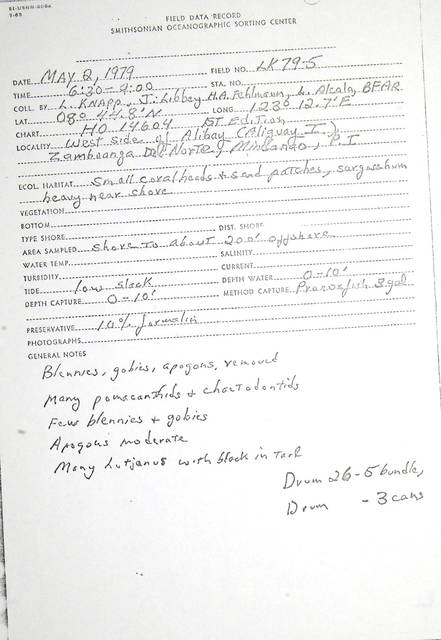 SI-USNM-808a
7-65
FIELD DATA RECORD
SMITHSONIAN OCEANOGRAPHIC SORTING CENTER
DATE MAY 2, 1979 FIELD NO. LK 79-5
TIME 6:30-9:00 STA. NO.
COLL. BY L. KNAPP, J. Libbey H.A. Fehlmann, L. Alcala, BFAR
LAT. 08° 44.8'N LONG. 123° 12.7'E
CHART HO 14604 1ST. Edition
LOCALITY West side of Alibay (Aliguay I.),
Zamboanga Del Norte, Mindanao, P.I
ECOL. HABITAT Small coral heads + sand patches, sargasshum
heavy near shore
VEGETATION
BOTTOM
TYPE SHORE DIST. SHORE
AREA SAMPLED Shore to about 200' offshore
WATER TEMP. SALINITY
TURBIDITY CURRENT
TIDE low slack DEPTH WATER 0-10'
DEPTH CAPTURE 0-10' METHOD CAPTURE Pronoxfish 3gal
PRESERVATIVE 10% formalin
PHOTOGRAPHS
GENERAL NOTES
Blennies, gobies, apogons, removed
Many pomacanthids + chaetodontids
Few blennies + gobies
Apogons moderate
Many Lutjanus with black in tail
Drum 26-5 bundle,
Drum - 3 cans